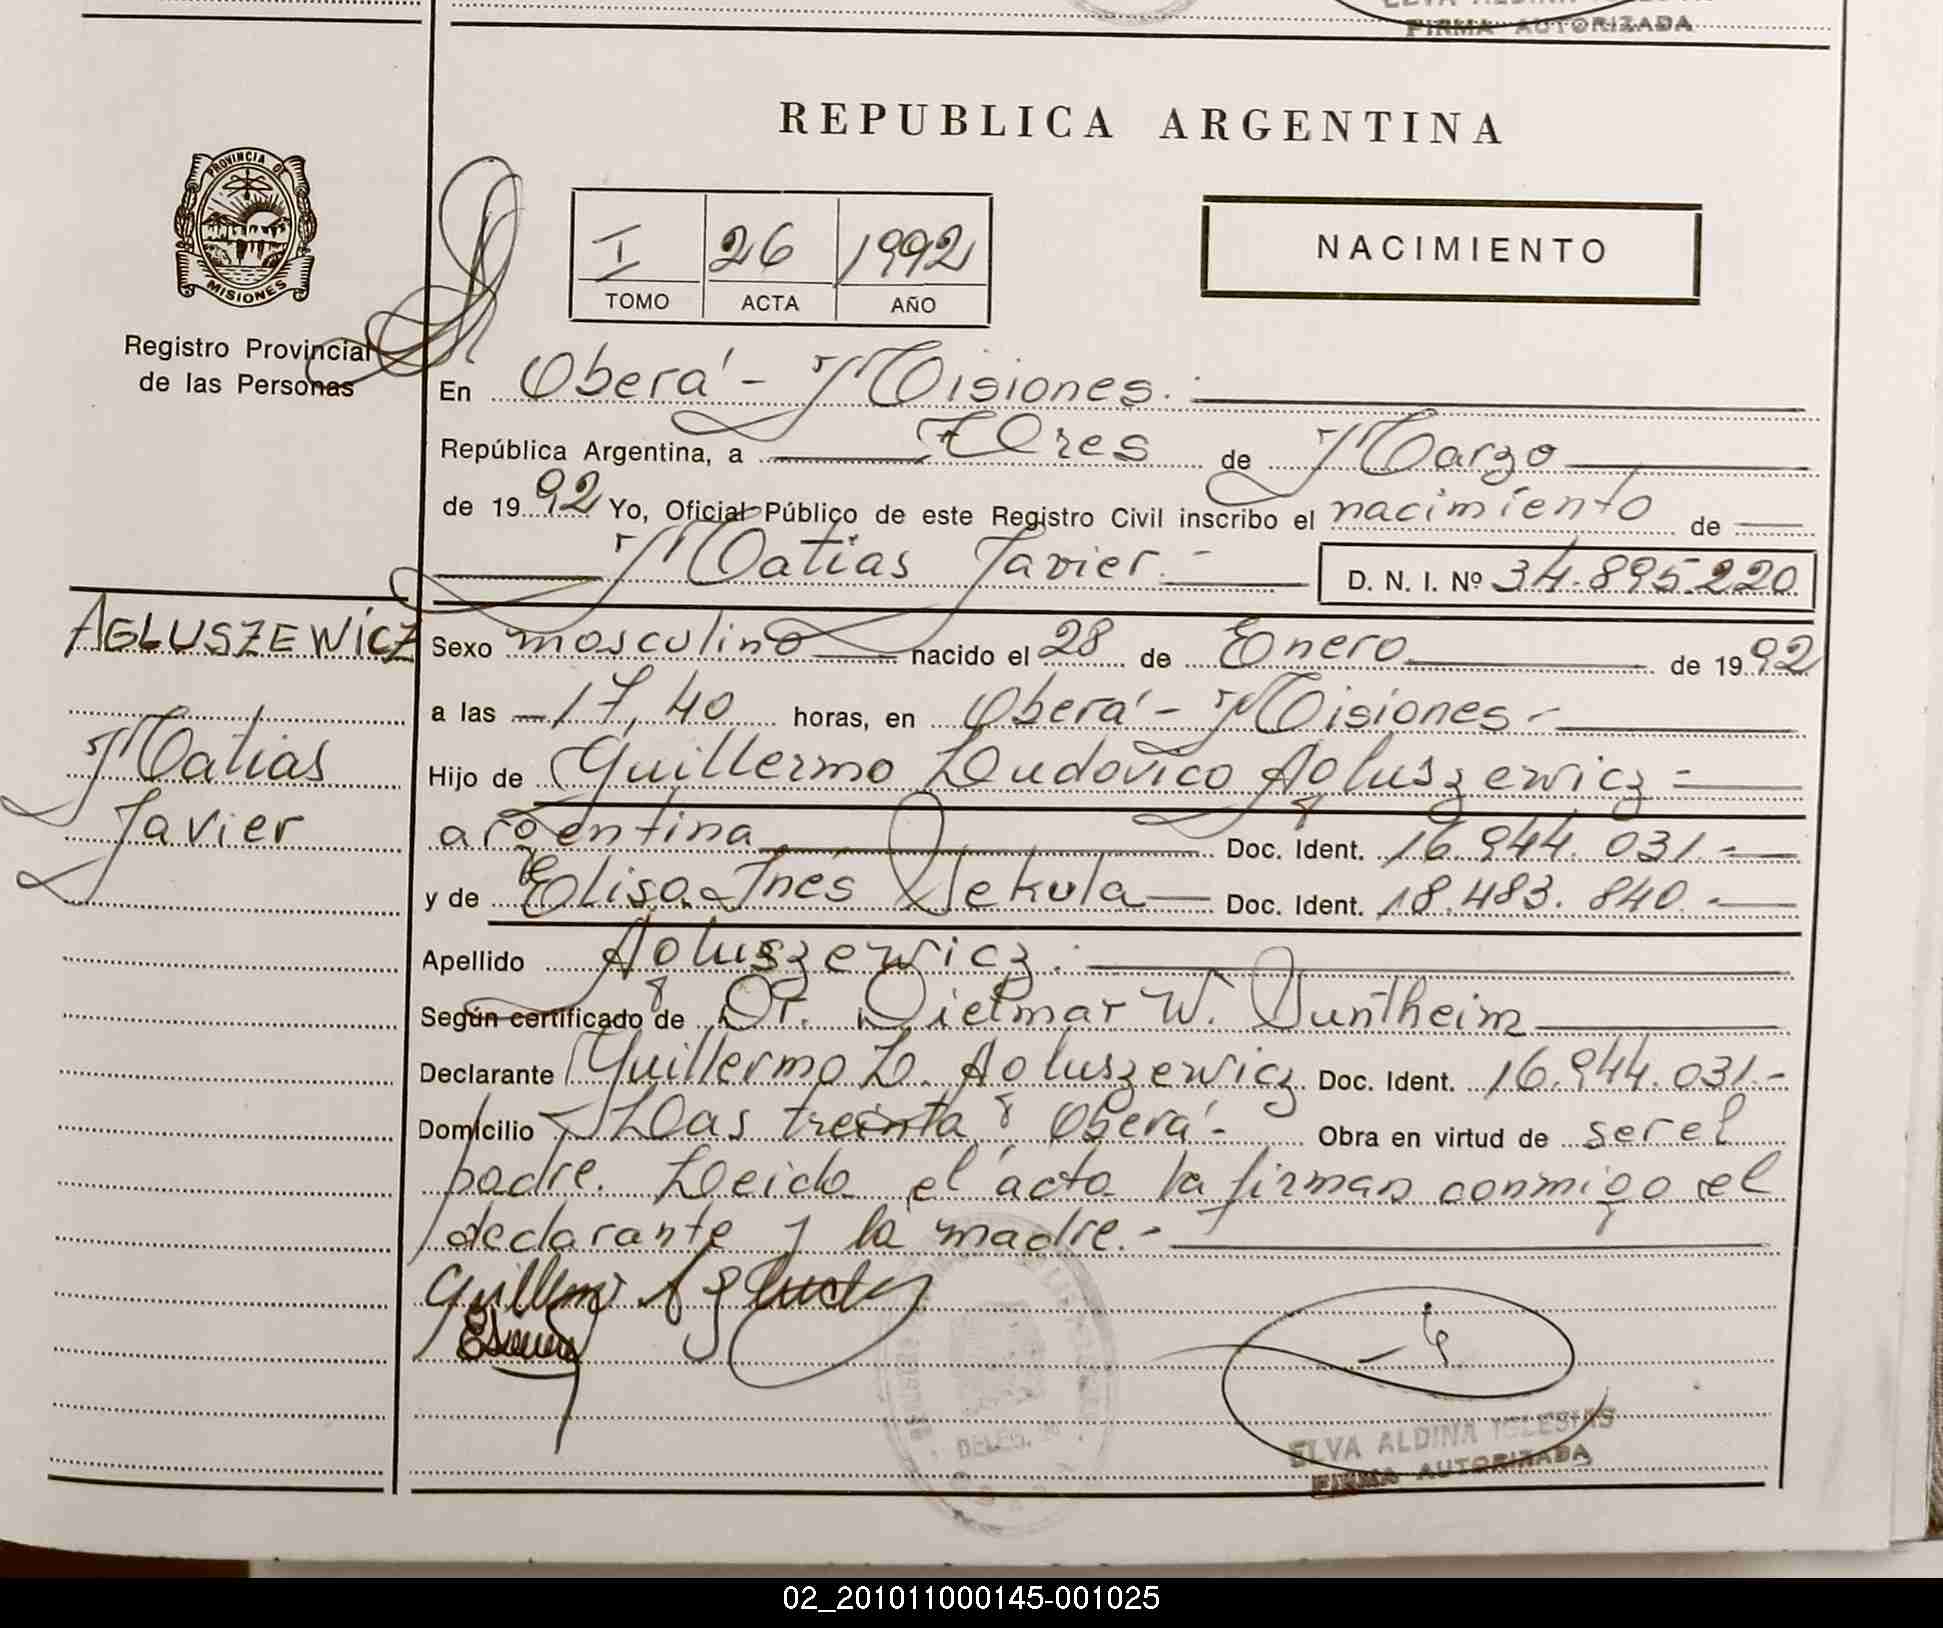 FIRMA AUTORIZADA
REPUBLICA ARGENTINA
PROVINCIA DE
MISIONES
Registro Provincial
de las Personas
I 26 1992
TOMO ACTA AÑO
NACIMIENTO
En Oberá - Misiones.
República Argentina, a Tres de Marzo
de 1992 Yo, Oficial Público de este Registro Civil inscribo el nacimiento de
Matias Javier.- D. N. I. Nº 34.895.220
AGLUSZEWICZ
Matias
Javier
Sexo masculino nacido el 28 de Enero de 1992
a las 17,40 horas, en Oberá - Misiones-
Hijo de Guillermo Ludovico Agluszewicz -
argentina Doc. Ident. 16.944.031.-
y de Elisa Inés Sekula Doc. Ident. 18.483.840.-
Apellido Agluszewicz.
Según certificado de Dr. Dietmar W. Suntheim
Declarante Guillermo L. Agluszewicz. Doc. Ident. 16.944.031.-
Domicilio Las treinta, Oberá.- Obra en virtud de ser el
padre. Leida el acta la firman conmigo el
declarante y la madre.-
Guillermo
DELEG.
ELVA ALDINA IGLESIAS
FIRMA AUTORIZADA
02_201011000145-001025